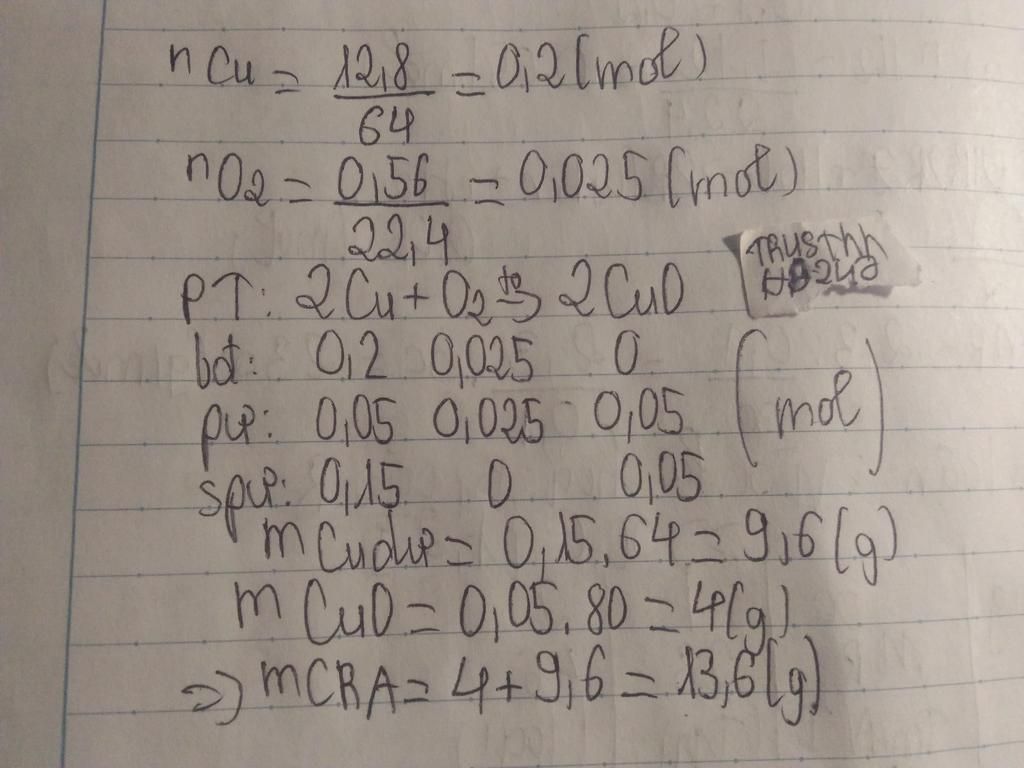 nCu = 12,8/64 = 0,2 (mol)
nO2 = 0,56/22,4 = 0,025 (mol)
PT: 2Cu + O2 t°→ 2CuO
bđ: 0,2 0,025 0
pư: 0,05 0,025 0,05 (mol)
spư: 0,15 0 0,05
mCu dư = 0,15.64 = 9,6 (g)
mCuO = 0,05.80 = 4 (g)
=> mCRA = 4 + 9,6 = 13,6 (g)